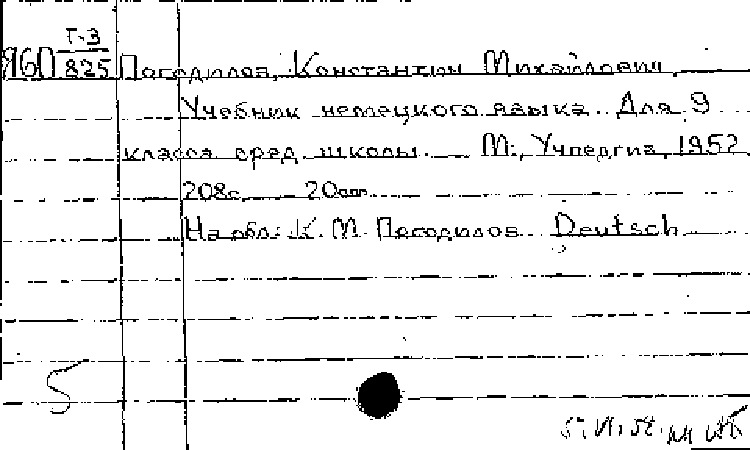 Г-3
Я60 825 Погодилов, Константин Михайлович.
Учебник немецкого языка. Для 9
класса сред. школы. М., Учпедгиз, 1952
208 с. 20 см.
На обл.: К. М. Погодилов. Deutsch
5